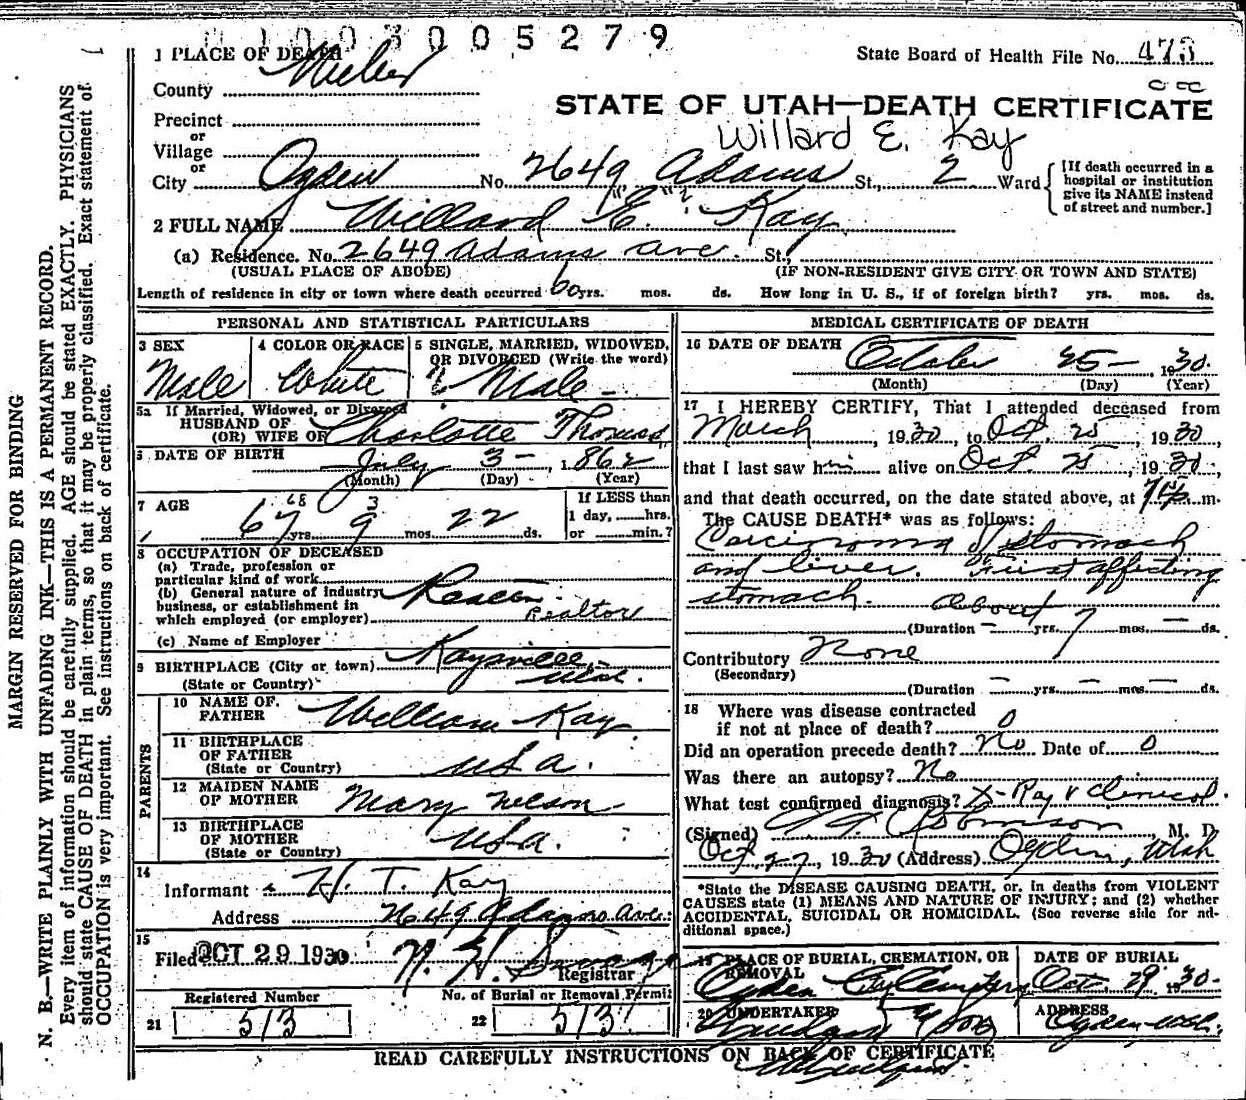 1003005279
1 PLACE OF DEATH
State Board of Health File No. 473
County Weber
STATE OF UTAH—DEATH CERTIFICATE
Precinct
or
Village
Willard E. Kay
or
City Ogden No. 2649 Adams St., 2 Ward
[If death occurred in a
hospital or institution
give its NAME instead
of street and number.]
2 FULL NAME Willard "E." Kay
(a) Residence. No. 2649 Adams Ave. St.,
(USUAL PLACE OF ABODE) (IF NON-RESIDENT GIVE CITY OR TOWN AND STATE)
Length of residence in city or town where death occurred 60 yrs. mos. ds. How long in U. S., if of foreign birth? yrs. mos. ds.
PERSONAL AND STATISTICAL PARTICULARS
3 SEX 4 COLOR OR RACE 5 SINGLE, MARRIED, WIDOWED,
OR DIVORCED (Write the word)
Male White Male
5a If Married, Widowed, or Divorced
HUSBAND OF
(OR) WIFE OF Charlotte Thomas
6 DATE OF BIRTH July 3 — , 1862
(Month) (Day) (Year)
7 AGE If LESS than
68 3
67 yrs. 9 mos. 22 ds.
1 day, hrs.
or min.?
8 OCCUPATION OF DECEASED
(a) Trade, profession or
particular kind of work
(b) General nature of industry
business, or establishment in
which employed (or employer)
Realtor
(c) Name of Employer
9 BIRTHPLACE (City or town) Kaysville
(State or Country) Utah.
PARENTS
10 NAME OF
FATHER William Kay
11 BIRTHPLACE
OF FATHER
(State or Country) USA.
12 MAIDEN NAME
OF MOTHER Mary Nelson
13 BIRTHPLACE
OF MOTHER
(State or Country) USA.
14
Informant H. T. Kay
Address 2649 Adams Ave.
15
Filed OCT 29 1930
Registrar
Registered Number No. of Burial or Removal Permit
21 513 22 513
MEDICAL CERTIFICATE OF DEATH
16 DATE OF DEATH October 25 — 1930.
(Month) (Day) (Year)
17 I HEREBY CERTIFY, That I attended deceased from
March , 1930, to Oct. 25 , 1930,
that I last saw him alive on Oct. 25 , 1930,
and that death occurred, on the date stated above, at m.
The CAUSE DEATH* was as follows:
Carcinoma of stomach
and liver. First affecting
stomach. about
(Duration — yrs. 7 mos. — ds.
Contributory None
(Secondary)
(Duration — yrs. — mos. — ds.
18 Where was disease contracted
if not at place of death? 0
Did an operation precede death? No Date of 0
Was there an autopsy? No
What test confirmed diagnosis? X-Ray & Clinical.
(Signed) Robinson , M. D.
Oct. 27, 1930 (Address) Ogden, Utah
*State the DISEASE CAUSING DEATH, or, in deaths from VIOLENT
CAUSES state (1) MEANS AND NATURE OF INJURY; and (2) whether
ACCIDENTAL, SUICIDAL OR HOMICIDAL. (See reverse side for ad-
ditional space.)
19 PLACE OF BURIAL, CREMATION, OR
REMOVAL
DATE OF BURIAL
Ogden City Cemetery Oct. 29 1930.
20 UNDERTAKER
ADDRESS
Ogden Utah.
READ CAREFULLY INSTRUCTIONS ON BACK OF CERTIFICATE
MARGIN RESERVED FOR BINDING
N. B.—WRITE PLAINLY WITH UNFADING INK—THIS IS A PERMANENT RECORD.
Every item of information should be carefully supplied. AGE should be stated EXACTLY. PHYSICIANS
should state CAUSE OF DEATH in plain terms, so that it may be properly classified. Exact statement of
OCCUPATION is very important. See instructions on back of certificate.